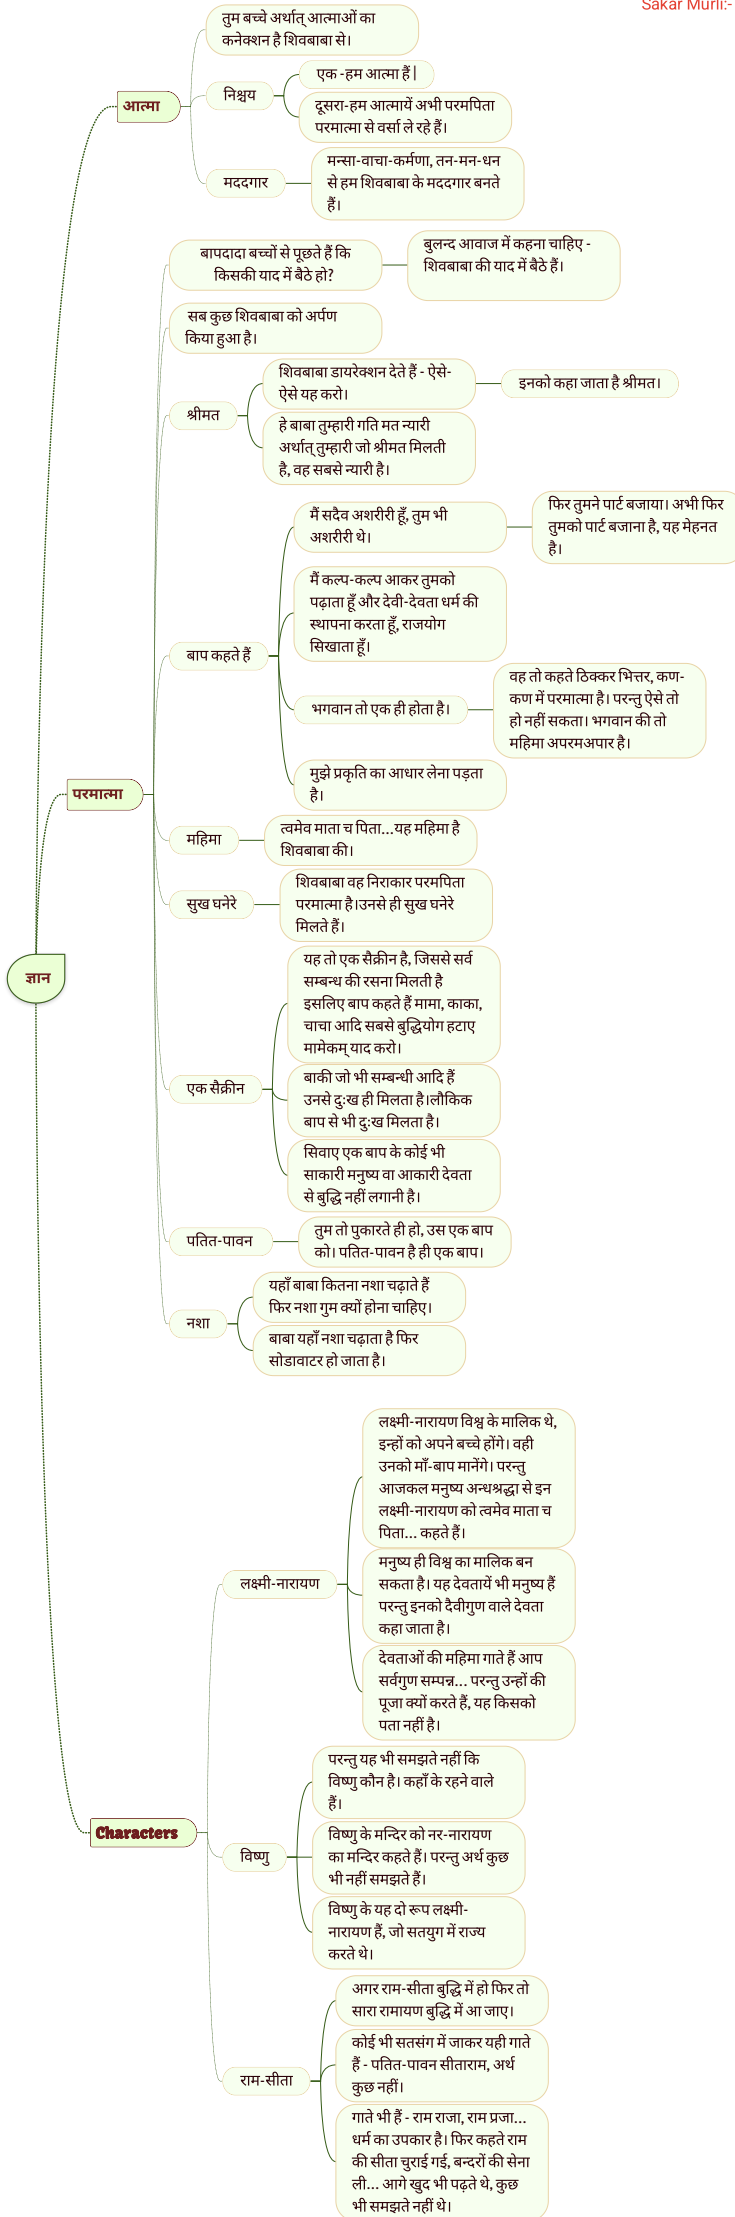 Sakar Murli:-
तुम बच्चे अर्थात् आत्माओं का
कनेक्शन है शिवबाबा से।
आत्मा
निश्चय
एक -हम आत्मा हैं|
दूसरा-हम आत्मायें अभी परमपिता
परमात्मा से वर्सा ले रहे हैं।
मददगार
मन्सा-वाचा-कर्मणा, तन-मन-धन
से हम शिवबाबा के मददगार बनते
हैं।
बापदादा बच्चों से पूछते हैं कि
किसकी याद में बैठे हो?
बुलन्द आवाज में कहना चाहिए -
शिवबाबा की याद में बैठे हैं।
सब कुछ शिवबाबा को अर्पण
किया हुआ है।
श्रीमत
शिवबाबा डायरेक्शन देते हैं - ऐसे-
ऐसे यह करो।
इनको कहा जाता है श्रीमत।
हे बाबा तुम्हारी गति मत न्यारी
अर्थात् तुम्हारी जो श्रीमत मिलती
है, वह सबसे न्यारी है।
बाप कहते हैं
मैं सदैव अशरीरी हूँ, तुम भी
अशरीरी थे।
फिर तुमने पार्ट बजाया। अभी फिर
तुमको पार्ट बजाना है, यह मेहनत
है।
मैं कल्प-कल्प आकर तुमको
पढ़ाता हूँ और देवी-देवता धर्म की
स्थापना करता हूँ, राजयोग
सिखाता हूँ।
भगवान तो एक ही होता है।
वह तो कहते ठिक्कर भित्तर, कण-
कण में परमात्मा है। परन्तु ऐसे तो
हो नहीं सकता। भगवान की तो
महिमा अपरमअपार है।
मुझे प्रकृति का आधार लेना पड़ता
है।
परमात्मा
महिमा
त्वमेव माता च पिता...यह महिमा है
शिवबाबा की।
सुख घनेरे
शिवबाबा वह निराकार परमपिता
परमात्मा है।उनसे ही सुख घनेरे
मिलते हैं।
ज्ञान
एक सैक्रीन
यह तो एक सैक्रीन है, जिससे सर्व
सम्बन्ध की रसना मिलती है
इसलिए बाप कहते हैं मामा, काका,
चाचा आदि सबसे बुद्धियोग हटाए
मामेकम् याद करो।
बाकी जो भी सम्बन्धी आदि हैं
उनसे दु:ख ही मिलता है।लौकिक
बाप से भी दु:ख मिलता है।
सिवाए एक बाप के कोई भी
साकारी मनुष्य वा आकारी देवता
से बुद्धि नहीं लगानी है।
पतित-पावन
तुम तो पुकारते ही हो, उस एक बाप
को। पतित-पावन है ही एक बाप।
नशा
यहाँ बाबा कितना नशा चढ़ाते हैं
फिर नशा गुम क्यों होना चाहिए।
बाबा यहाँ नशा चढ़ाता है फिर
सोडावाटर हो जाता है।
Characters
लक्ष्मी-नारायण
लक्ष्मी-नारायण विश्व के मालिक थे,
इन्हों को अपने बच्चे होंगे। वही
उनको माँ-बाप मानेंगे। परन्तु
आजकल मनुष्य अन्धश्रद्धा से इन
लक्ष्मी-नारायण को त्वमेव माता च
पिता... कहते हैं।
मनुष्य ही विश्व का मालिक बन
सकता है। यह देवतायें भी मनुष्य हैं
परन्तु इनको दैवीगुण वाले देवता
कहा जाता है।
देवताओं की महिमा गाते हैं आप
सर्वगुण सम्पन्न... परन्तु उन्हों की
पूजा क्यों करते हैं, यह किसको
पता नहीं है।
विष्णु
परन्तु यह भी समझते नहीं कि
विष्णु कौन है। कहाँ के रहने वाले
हैं।
विष्णु के मन्दिर को नर-नारायण
का मन्दिर कहते हैं। परन्तु अर्थ कुछ
भी नहीं समझते हैं।
विष्णु के यह दो रूप लक्ष्मी-
नारायण हैं, जो सतयुग में राज्य
करते थे।
राम-सीता
अगर राम-सीता बुद्धि में हो फिर तो
सारा रामायण बुद्धि में आ जाए।
कोई भी सतसंग में जाकर यही गाते
हैं - पतित-पावन सीताराम, अर्थ
कुछ नहीं।
गाते भी हैं - राम राजा, राम प्रजा...
धर्म का उपकार है। फिर कहते राम
की सीता चुराई गई, बन्दरों की सेना
ली... आगे खुद भी पढ़ते थे, कुछ
भी समझते नहीं थे।